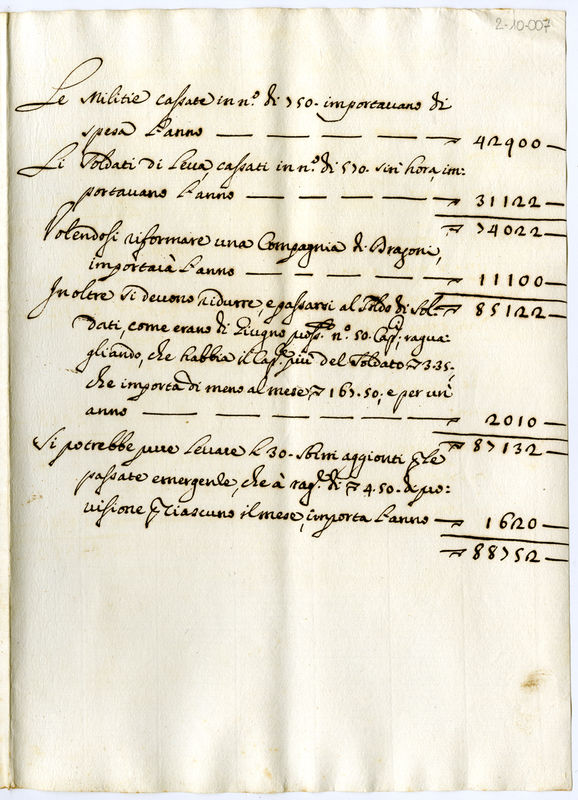 2-10-007
Le Militie cassate in n.º di 750. importauano di
spesa l'anno — — — — — 42900 —
Li Soldati di Leua, cassati in n.º di 570. sin' hora, im:
portauano l'anno — — — — 31122 —
74022 —
Volendosi riformare una Compagnia di Dragoni,
importarà l'anno — — — — 11100 —
Inoltre si deuono ridurre, e passarsi al soldo di Sol- 85122 —
dati, come erano di Giugno pass.º n.º 50. Cap.i; ragua:
gliando, che habbia il Cap.e più del Soldato 3.35.
che importa di meno al mese 167.50; e per un'
anno — — — — — 2010 —
Si potrebbe pure leuare l 30. Sbirri aggionti p le 87132 —
passate emergenze, che à rag.e di 4.50. di pro:
uisione p ciascuno il mese, importa l'anno — 1620 —
88752 —